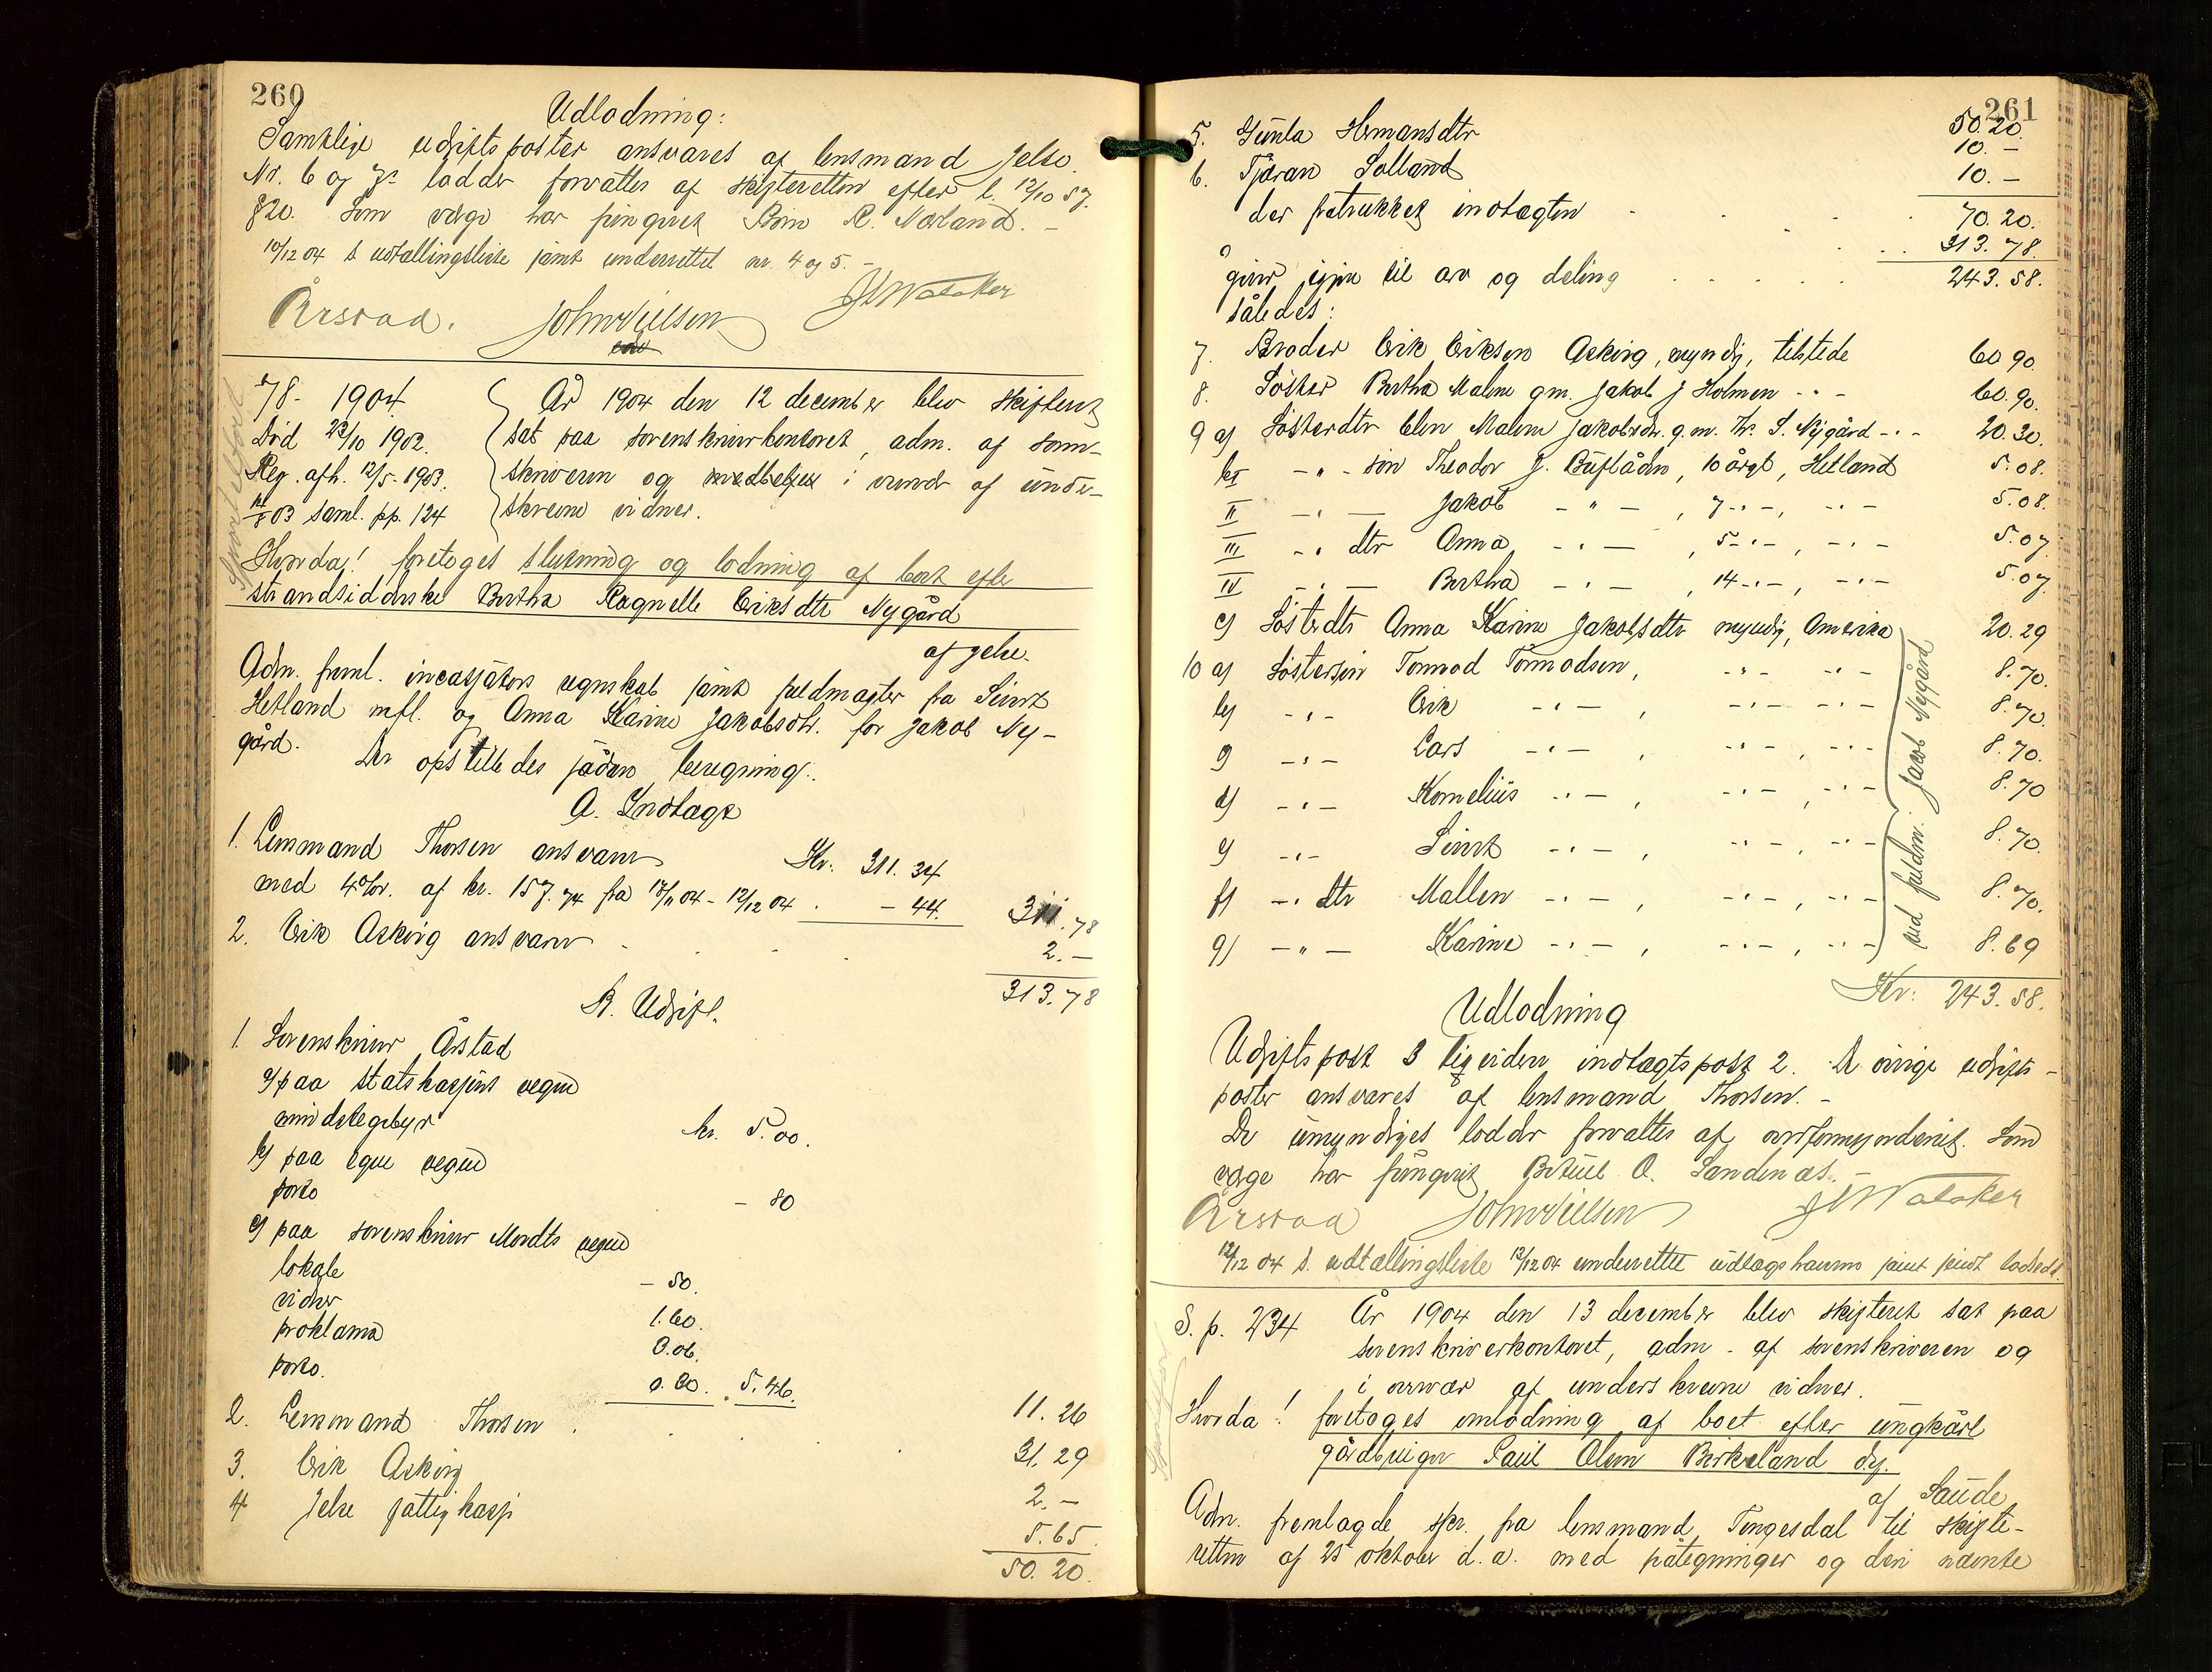 260
Udlodning:
Samtlige udgiftsposter ansvares af lensmand Jelse.
Nr. 6 og 7s lodder forvaltes af skifteretten efter l. 12/10 57
§20. Som værge har fungeret R. Norland. –
10/12 04 s. udtallingsliste jämt underrettet nr. 4 og 5. –
Årstad. John Nielsen
78- 1904.
Död 23/10 1902.
Reg. afh. 12/5-1903.
14/8 03 saml. pp. 124
År 1904 den 12 december blev skifteret
sat paa sorenskriverkontoret, adm. af soren-
skriveren og i overvær af under-
skrevne vidner.
Hvorda! foretoges slutning og lodning af boet efter
strandsidderske Bertha Ragnelle Eriksdtr Nygård
af Jelse.
Adm. freml. incassators regnskab jämt fuldmagter fra Sivert
Hetland mfl. og Anna Karine Jakobsdtr. for Jakob Ny-
gård. Der opstilledes sådan beregning:
A. Indtægt
1. Lensmand Thorsen ansvarer Kr. 311. 34
med 4% r. af kr. 157.74 fra 17/11 04 - 12/12 04 . – 44. 311.78
2. Erik Asking ansvarer 2. –
313. 78
B. Udgift.
1. Sorenskriver Årstad
a) paa statskassens vegne
mindstegebyr kr. 5.00.
b) paa egne vegne
porto – 80
c) paa sorenskriver Mordts vegne
lokale – 50.
vidner 1.60.
proklama 3.06.
porto. 0.30. 5.46.
11. 26
2. Lensmand Thorsen 31. 29
3. Erik Asking 2. –
4 Jelse fattigkasse 5.65.
50. 20.
261
50.20.
5. Gunla Hermansdtr 10. –
6. Tjøran Solland 10. –
70. 20.
der fratrukket indtægten 313. 78.
giver igjen til arv og deling 243. 58.
således:
7. Broder Erik Eriksen Asking, myndig, tilstede 60 90.
8. Söster Bertha Malene gm. Jakob J Holmen - " - 60.90.
9 a) Sösterdtr Elen Malene Jakobsdtr. g.m. Th. S. Nygård - " - 20.30.
bI - " - sön Theodor J. Buflåden, 10 årgl, Hetland 5.08.
II - " - Jakob - " - , 7 - " - , - " - 5.08.
III - " dtr Anna - " - , 5 - " - , - " - 5.07
IV - " - Bertha - " - , 14 - " - , - " - 5.07
c) Sösterdtr Anna Karine Jakobsdtr myndig, Amerika 20.29
10 a) Söstersön Tormod Tormodsen, - " - - " - 8.70.
b) - " - Erik - " - , - " - - " - 8.70.
c) - " - Lars - " - , - " - , - " - 8.70.
d) - " - Kornelius - " - , - " - , - " - 8.70
e) - " - Sivert - " - , - " - , - " - 8.70.
f) - " dtr Mallen - " - , - " - , - " - 8.70.
g) - " - Karine - " - , - " - , - " - 8.69
ved fuldm: Jacob Nygård
Kr: 243.58.
Udlodning
Udgiftspost 3 ligeiden indtægtspost 2. De övrige udgifts-
poster ansvares af lensmand Thorsen. –
De umyndiges lodder forvaltes af overformynderiet. Som
værge har fungeret Bertuel O. Sandenæs. –
Årstad John Nielsen
12/12 04 s. udtallingsliste 12/12 04 underrettet udlægshaverne jämt
S. p. 234 År 1904 den 13 december blev skifteret sat paa
sorenskriverkontoret, adm. af sorenskriveren og
i overvær af underskrevne vidner.
Hvorda! foretoges omlodning af boet efter ungkårl
gårdbruger Paul Olsen Birkeland dy.
af Saude
Adm. fremlagde skr. fra lensmand Tengesdal til skifte-
retten af 25 oktober d.a. med påtegninger og den nævnte